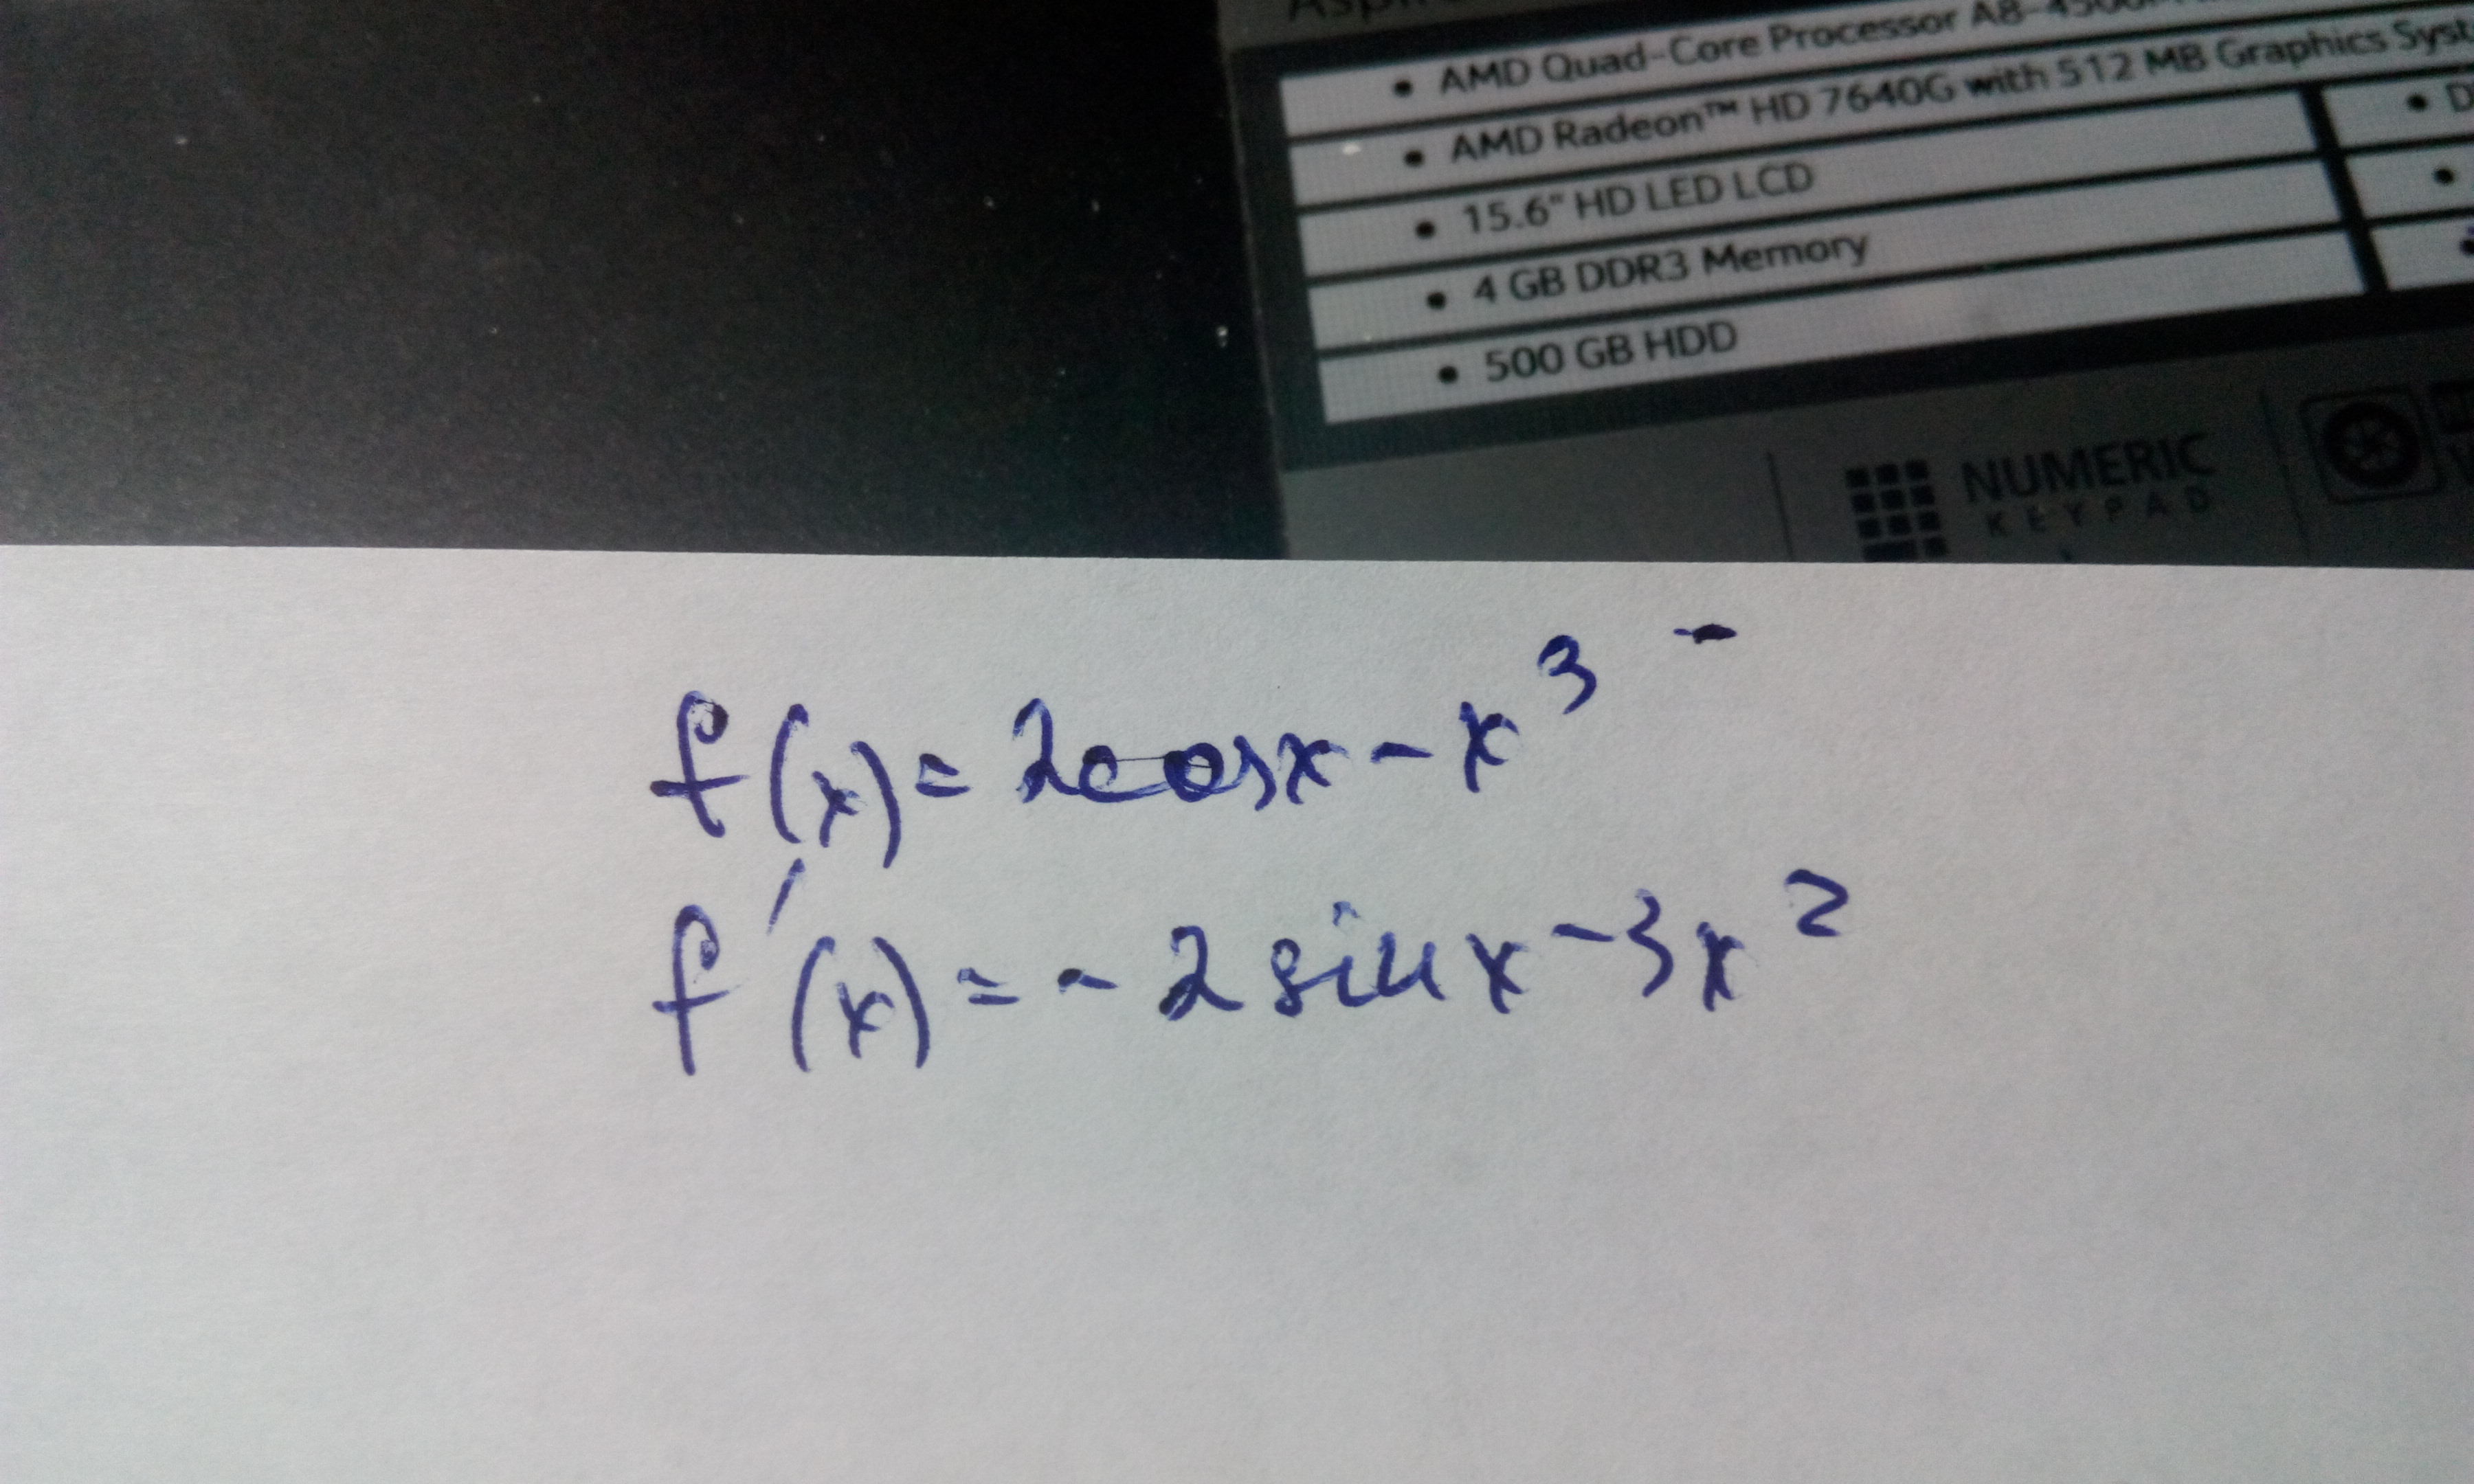 • AMD Quad-Core Processor A8-4500M
• AMD Radeon™ HD 7640G with 512 MB Graphics
• 15.6" HD LED LCD
• 4 GB DDR3 Memory
• 500 GB HDD
NUMERIC
KEYPAD
f(x) = 2cosx - x³ -
f'(x) = - 2 sin x - 3x²